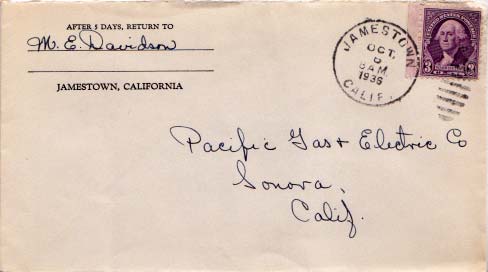 AFTER 5 DAYS, RETURN TO
M. E. Davidson
JAMESTOWN, CALIFORNIA
JAMESTOWN
OCT.
6
8 AM
1936
CALIF.
3 3
Pacific Gas & Electric Co
Sonora,
Calif.